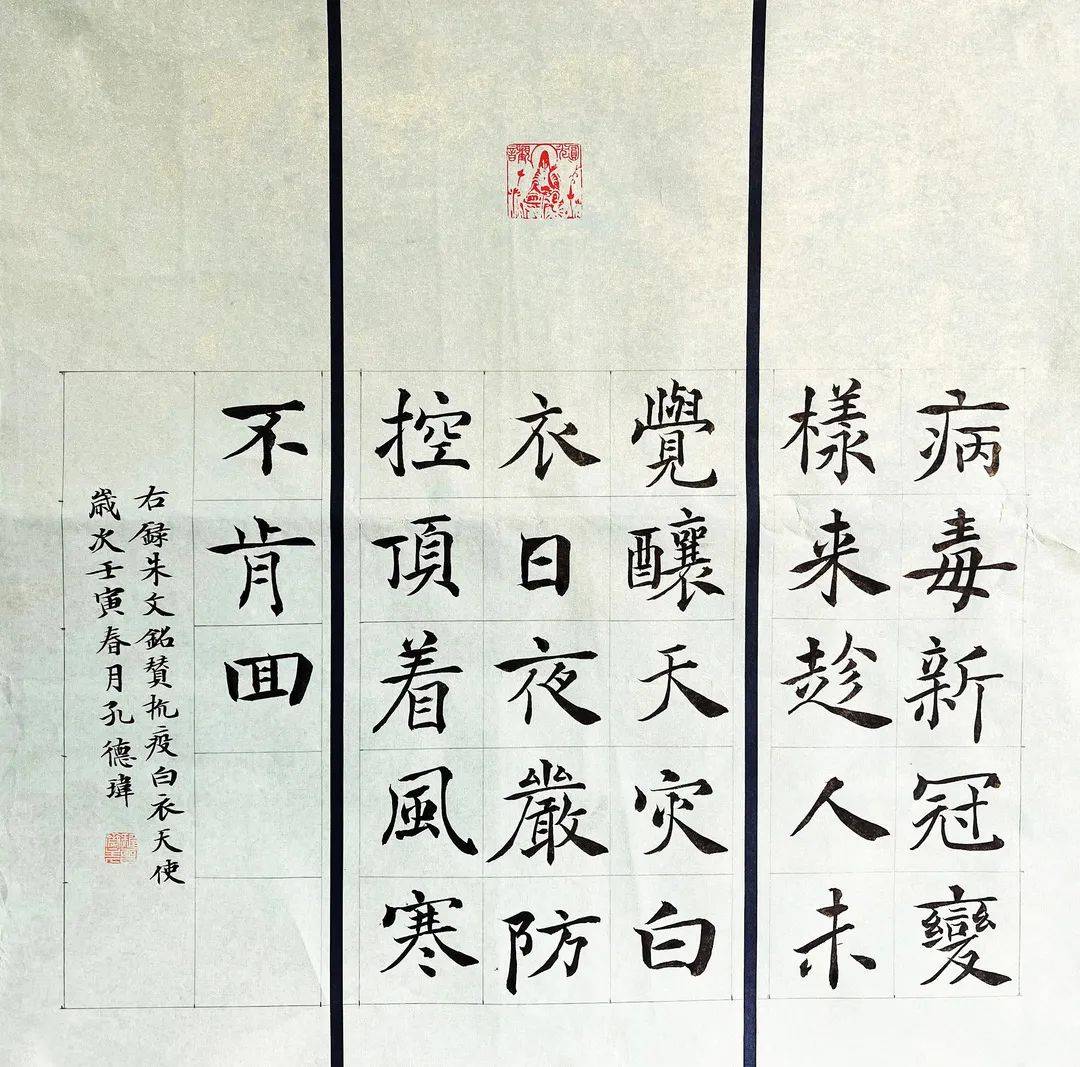 病毒新冠變
樣来趁人未
覺釀天灾白
衣日夜嚴防
控頂着風寒
不肯回
右録朱文銘赞抗疫白衣天使
歳次壬寅春月孔德瑋